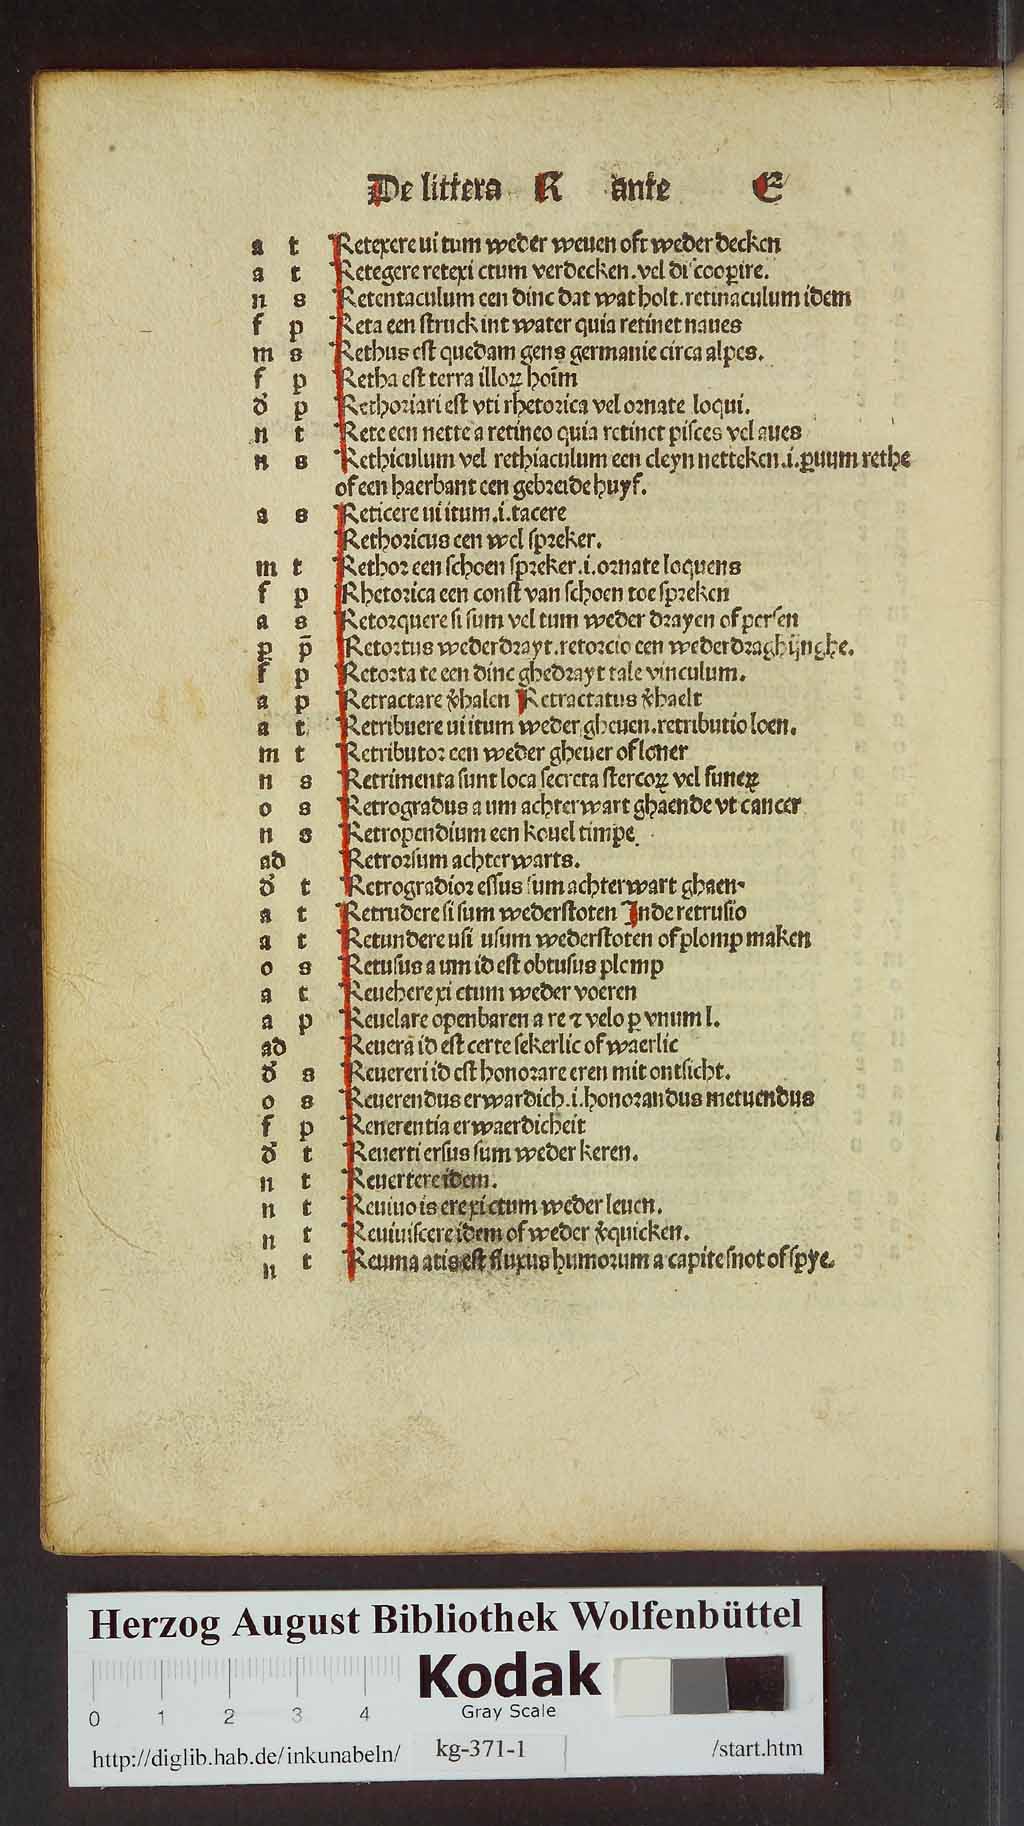 De littera R ante E
a t Retexere ui tum weder weuen oft weder decken
a t Retegere retexi ctum verdecken .vel di͛cooꝑire.
n s Retentaculum een dinc dat wat holt .retinaculum idem
f p Reta een struck int water quia retinet naues
m s Rethus est quedam gens germanie circa alpes.
f p Retha est terra illoꝝ hoīm
đ p Rethoriari est vti rhetorica vel ornate loqui.
n t Rete een nette a retineo quia retinet pisces vel aues
n s Rethiculum vel rethiaculum een cleyn netteken .i. ꝑuum rethe
of een haerbant een gebreide huyf.
a s Reticere ui itum .i. tacere
Rethoricus een wel spreker.
m t Rethor een schoen spreker .i. ornate loquens
f p Rhetorica een const van schoen toe spreken
a s Retorquere si sum vel tum weder drayen of persen
ꝑ p̄ Retortus wederdrayt .retorcio een wederdraghijnghe.
f p Retorta te een dinc ghedrayt tale vinculum.
a p Retractare v͛halen Retractatus v͛haelt
a t Retribuere ui itum weder gheuen .retributio loen.
m t Retributor een weder gheuer of loner
n s Retrimenta sunt loca secreta stercoꝝ vel funeꝝ
o s Retrogradus a um achterwart ghaende vt cancer
n s Retropendium een kouel timpe.
ad Retrorsum achterwarts.
đ t Retrogradior essus sum achterwart ghaen.
a t Retrudere si sum wederstoten Inde retrusio
a t Retundere usi usum wederstoten of plomp maken
o s Retusus a um id est obtusus plomp
a t Reuehere xi ctum weder voeren
a p Reuelare openbaren a re ⁊ velo ꝑ vnum l.
ad Reuerā id est certe sekerlic of waerlic
đ s Reuereri id est honorare eren mit ontsicht.
o s Reuerendus erwardich .i. honorandus metuendus
f p Renerentia erwaerdicheit
đ t Reuerti ersus sum weder keren.
n t Reuertere idem.
n t Reuiuo is ere xi ctum weder leuen.
n t Reuiuiscere idem of weder v͛quicken.
n t Reuma atis est fluxus humorum a capite snot of spye.
Herzog August Bibliothek Wolfenbüttel
Kodak
Gray Scale
0 1 2 3 4
http://diglib.hab.de/inkunabeln/ kg-371-1 /start.htm